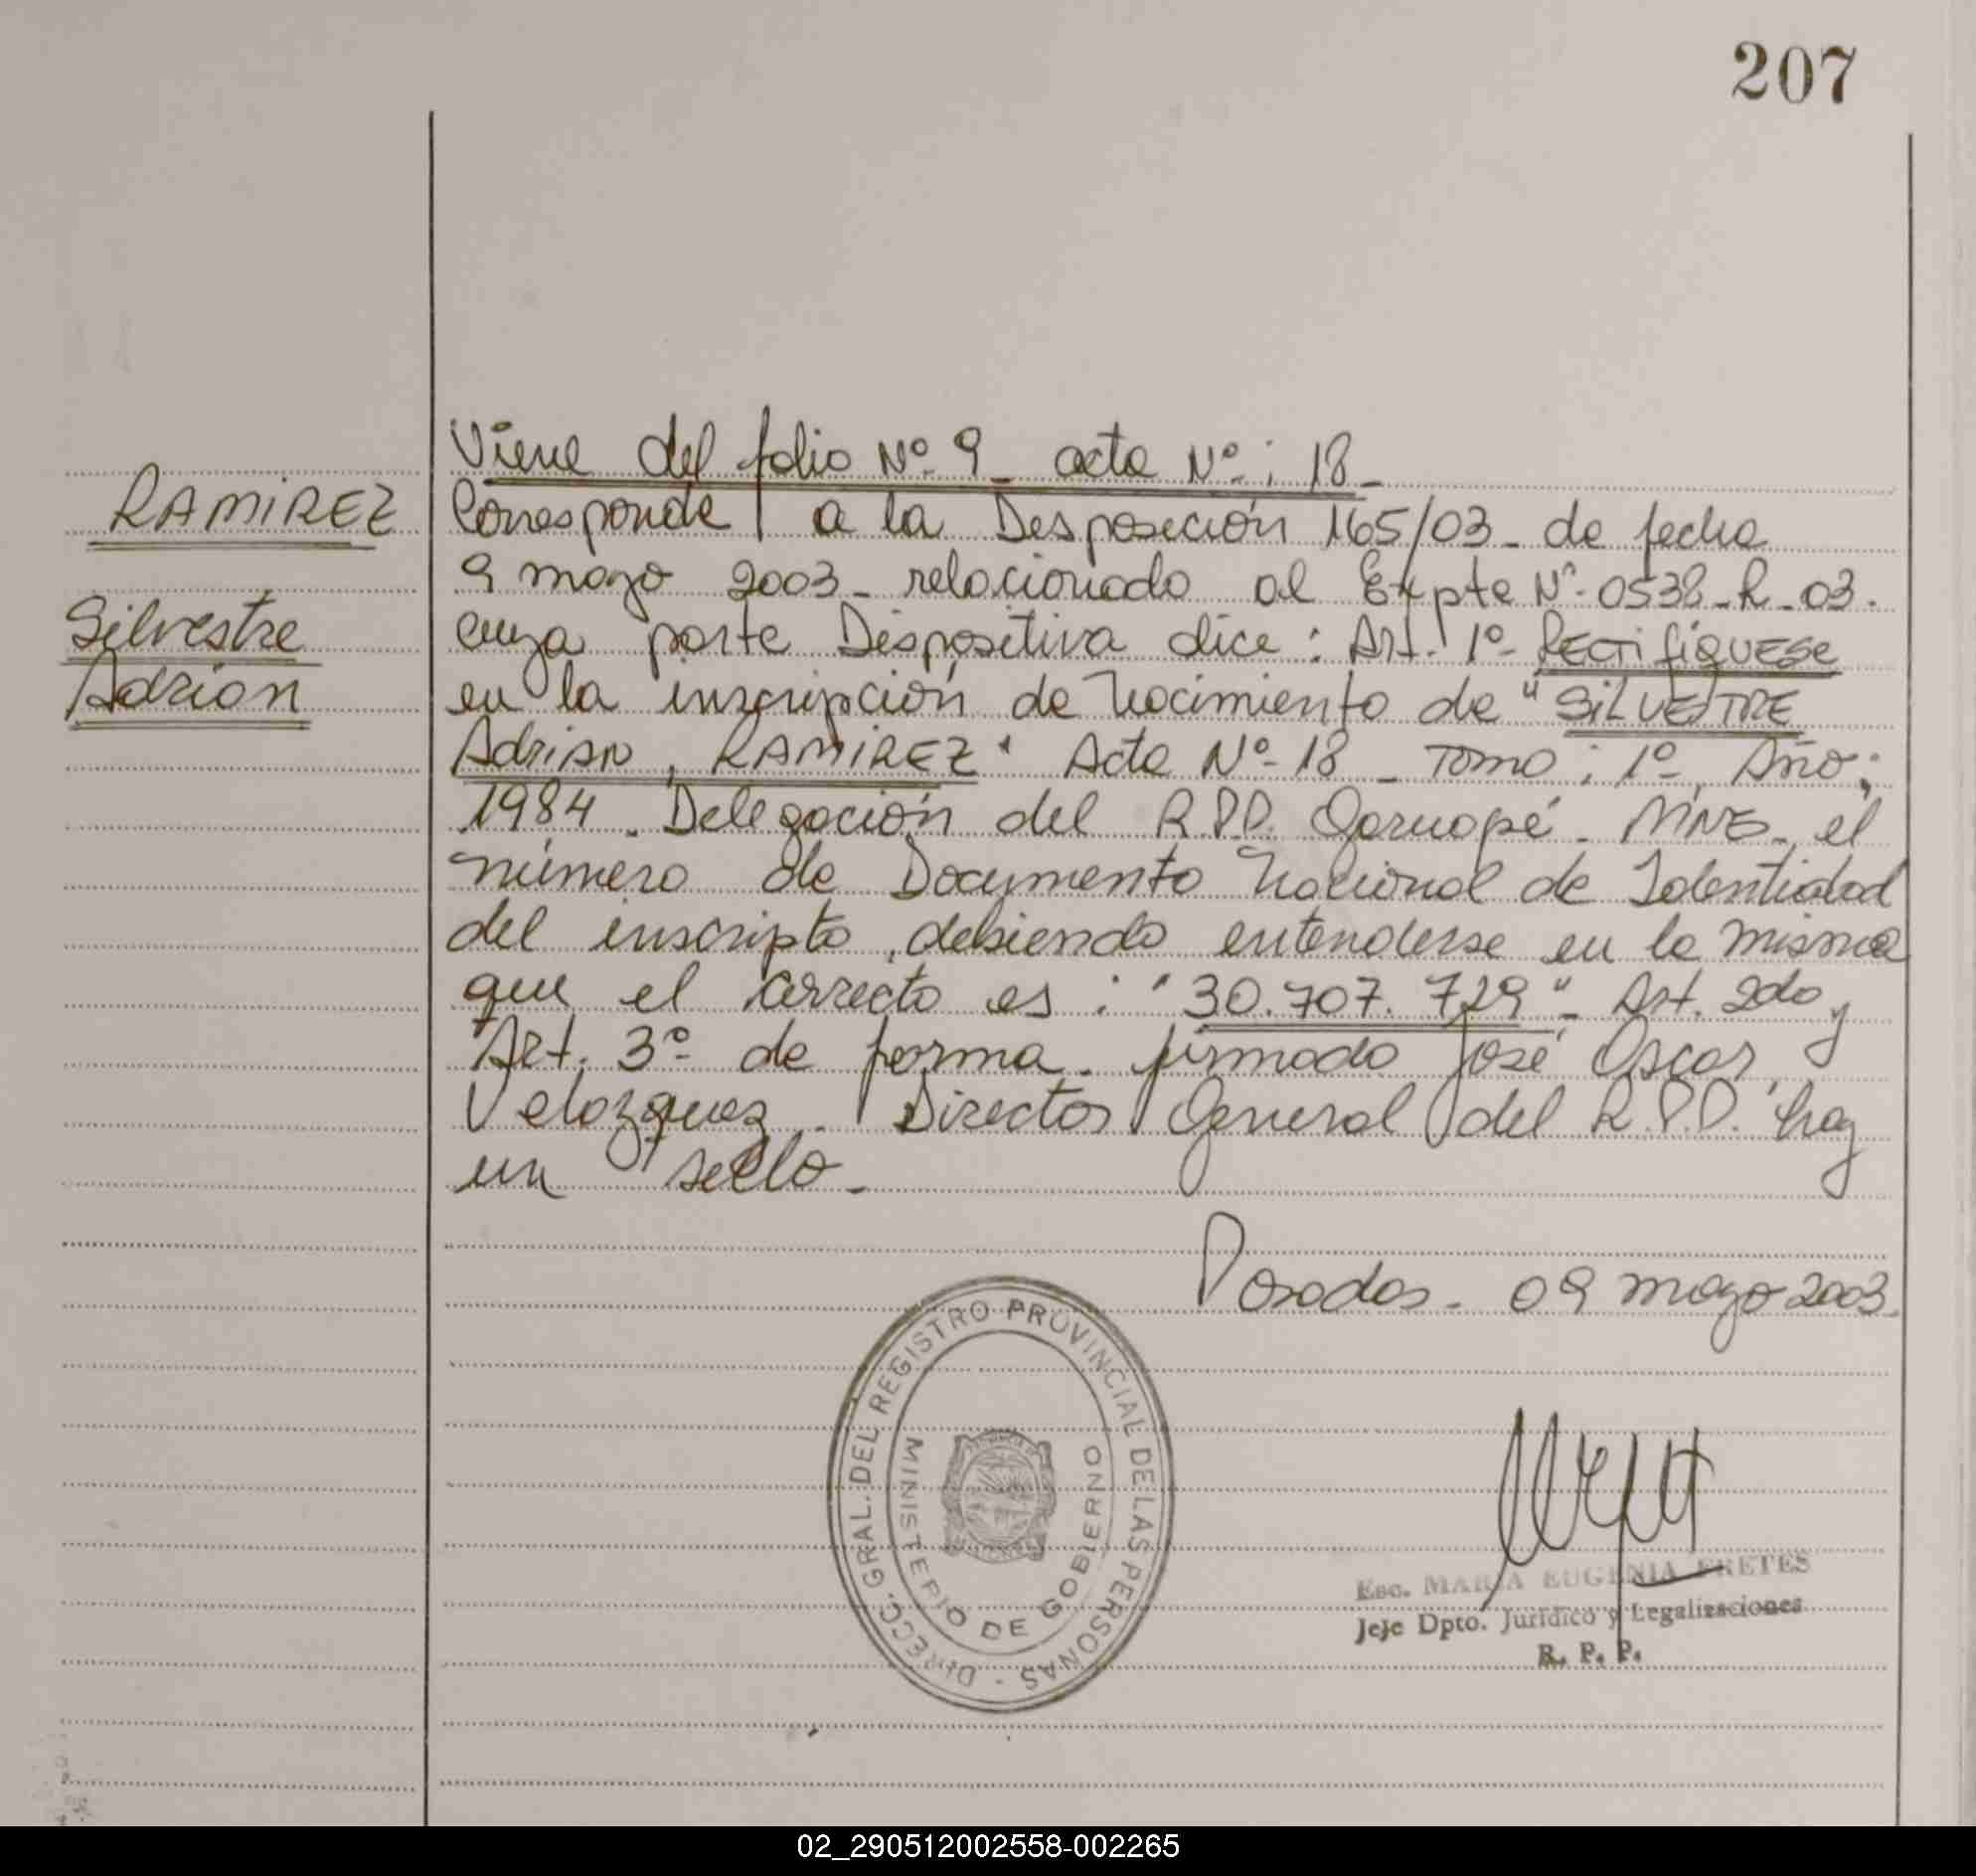 207
Viene del folio Nº 9 _ acta Nº : 18 _
RAMIREZ
Corresponde a la Desposición 165/03 _ de fecha
9 mayo 2003 _ relacionado al Expte Nº 0538 _ R _ 03.
Silvestre
cuya parte Dispositiva dice : Art. 1º Rectifíquese
Adrian
en la inscripción de nacimiento de "SILVESTRE
Adrian, RAMIREZ" Acta Nº 18 _ Tomo : 1º, Año:
1984 _ Delegación del R.P.P. Garuapé _ MNES _ el
número de Documento Nacional de Identidad
del inscripto, debiendo entenderse en la misma
que el correcto es : "30.707.729" _ Art. 2do y
Art. 3º de forma _ firmado José Oscar
Velozquez _ Director General del R.P.P. hay
un sello _
Posadas _ 09 mayo 2003 _
DIRECC. GRAL. DEL REGISTRO PROVINCIAL DE LAS PERSONAS -
MINISTERIO DE GOBIERNO
Esc. MARIA EUGENIA FRETES
Jefe Dpto. Jurídico y Legalizaciones
R. P. P.
02_290512002558-002265